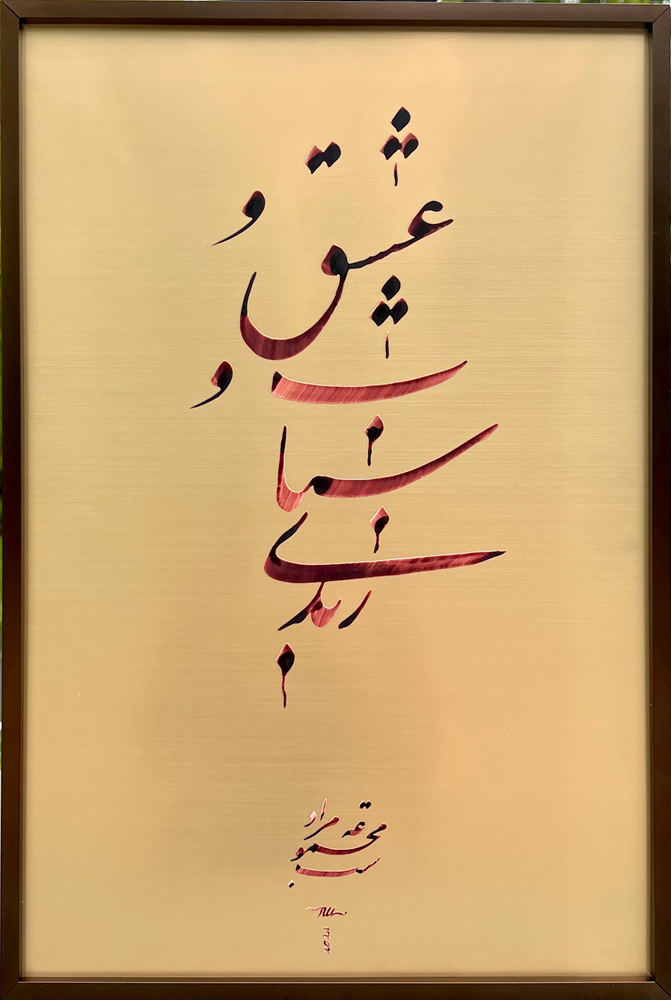 عشق و
شباب و
رندی
مجموعه مراد
ست